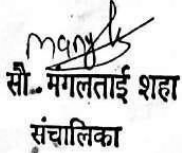 सौ. मंगलताई शहा
संचालिका